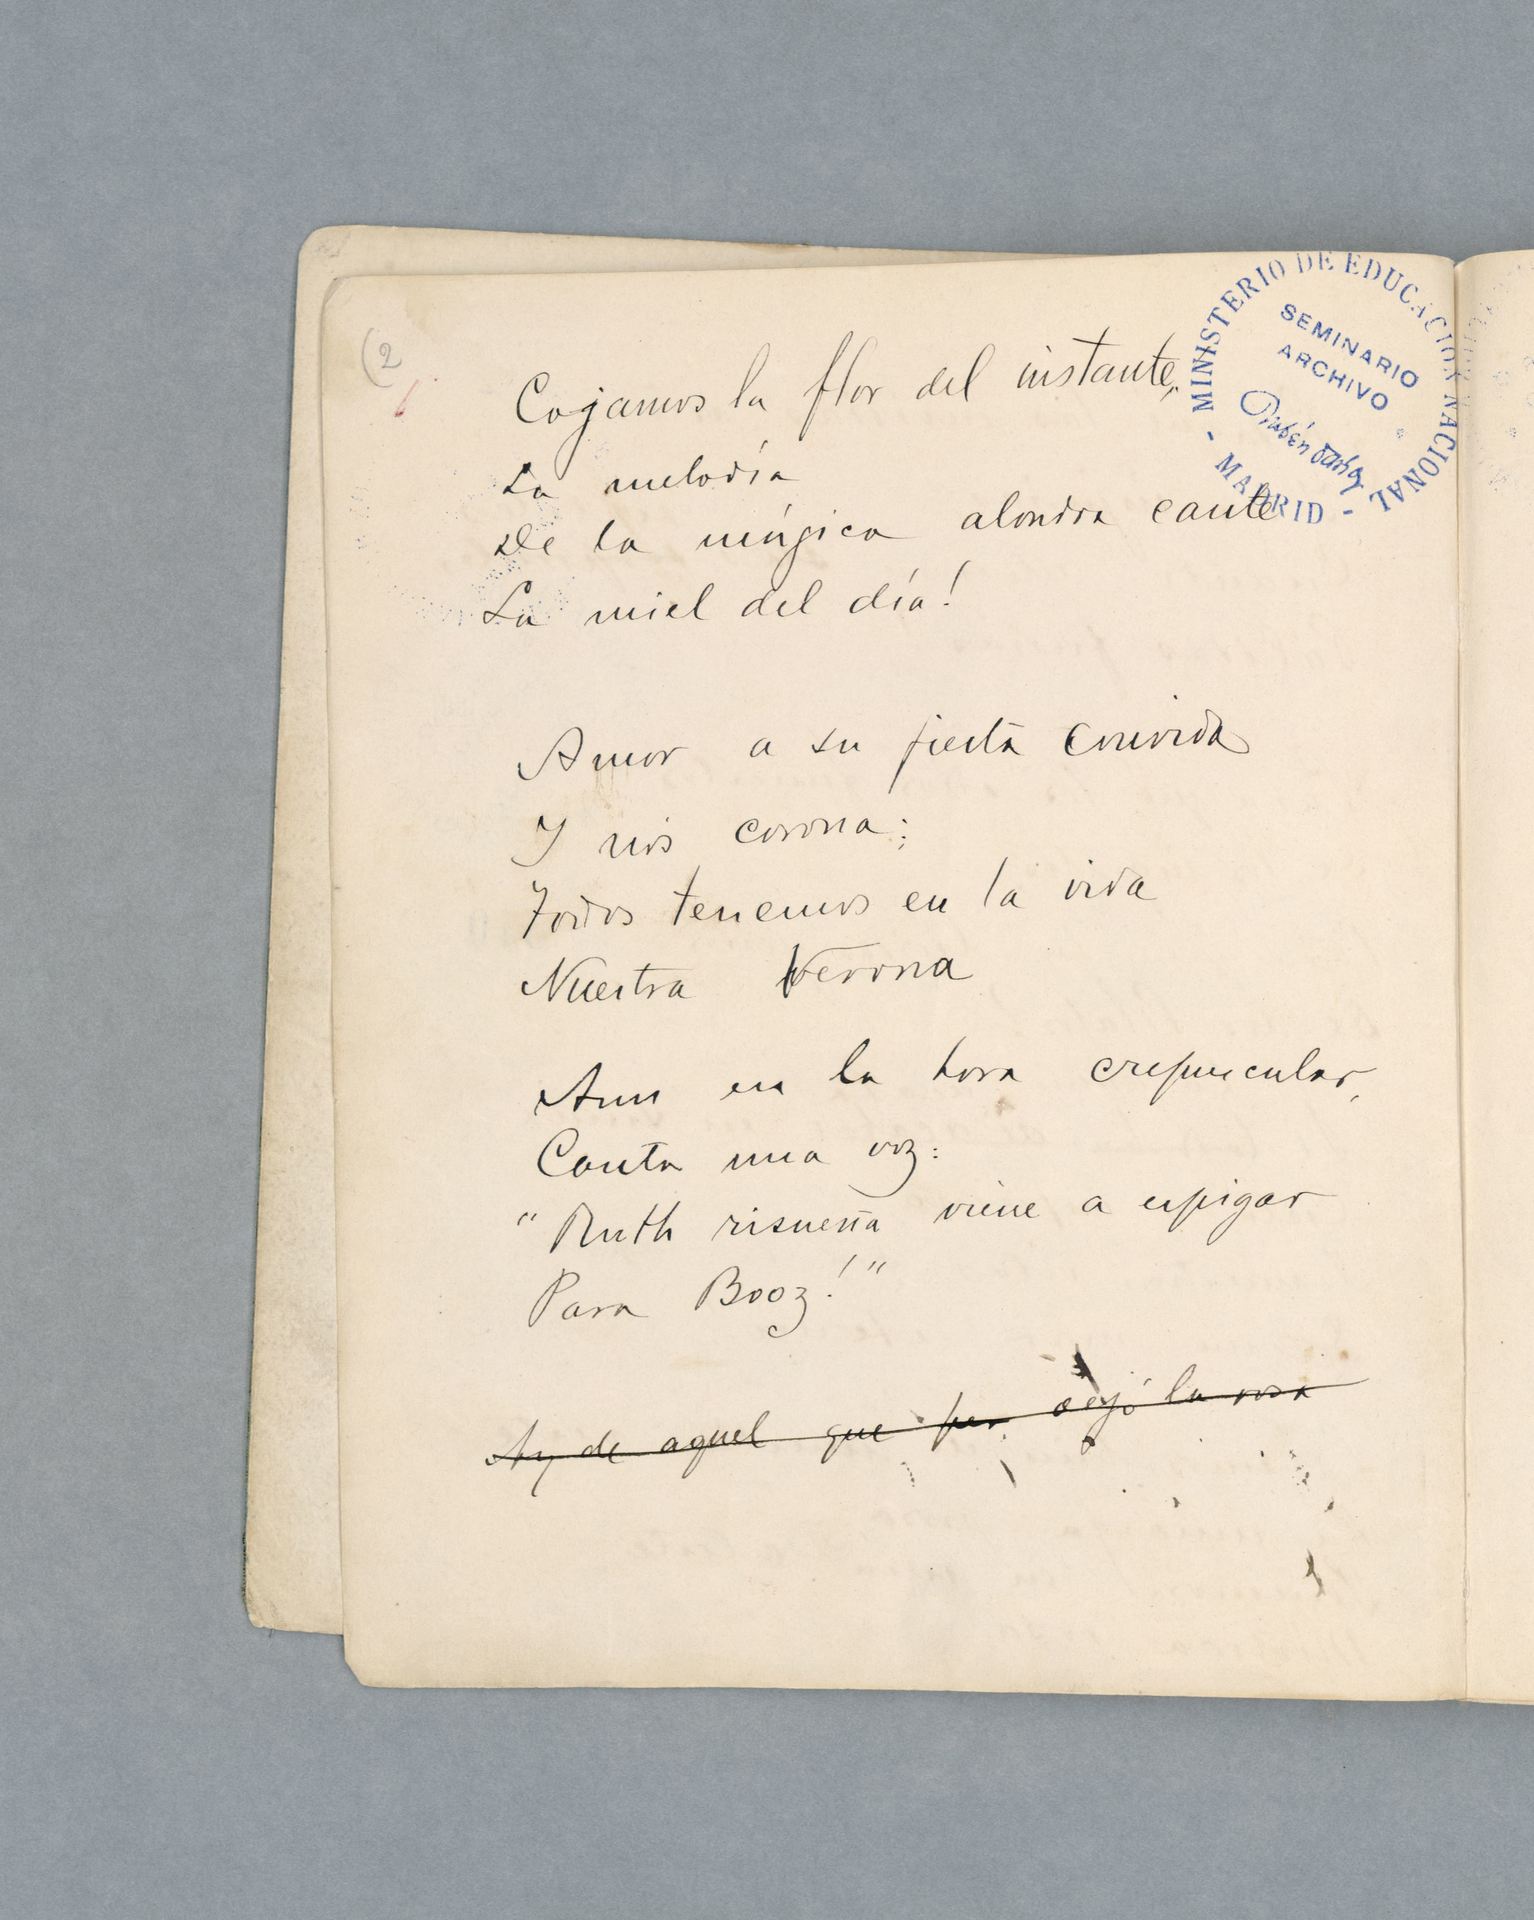 (2
MINISTERIO DE EDUCACION NACIONAL
- MADRID -
SEMINARIO
ARCHIVO
Rubén Darío
Cojamos la flor del instante,
La melodía
De la mágica alondra cante
La miel del día!
Amor a su fiesta convida
Y nos corona;
Todos tenemos en la vida
Nuestra Verona
Aun en la hora crepuscular,
Canta una voz:
"Ruth risueña viene a espigar
Para Booz!"
Ay de aquel que dejó la rosa